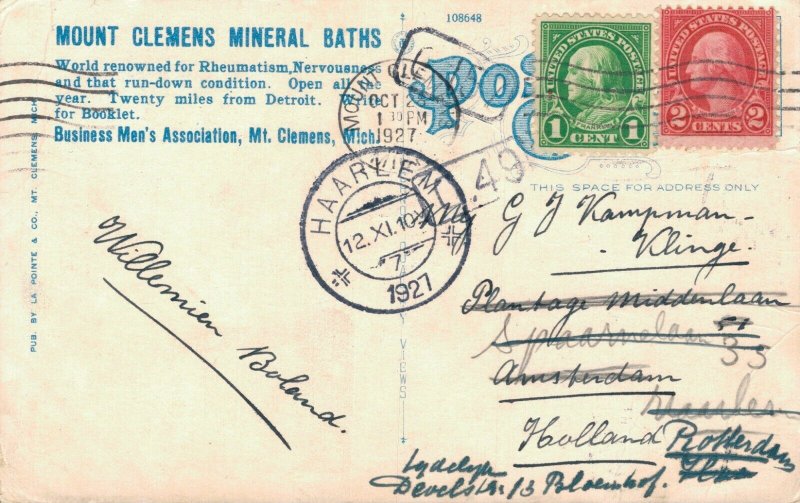 108648
MOUNT CLEMENS MINERAL BATHS
World renowned for Rheumatism, Nervousness
and that run-down condition. Open all the
year. Twenty miles from Detroit. W
for Booklet.
Business Men's Association, Mt. Clemens, Mich.
PUB. BY LA POINTE & CO., MT. CLEMENS, MICH.
MOUNT CLE
OCT 2
1 30 PM
1927
Pos
UNITED STATES POSTAGE
FRANKLIN
1 CENT 1
UNITED STATES POSTAGE
2 CENTS 2
49
HAARLEM
12.XI.10
7
1927
THIS SPACE FOR ADDRESS ONLY
VIEWS
Willemien Boland.
G J Kampman-
Klinge.
Plantage Middenlaan
Spaarnelaan 33
Amsterdam
Haarlem
Holland Rotterdam
tydelyk
13 Bloemhof.